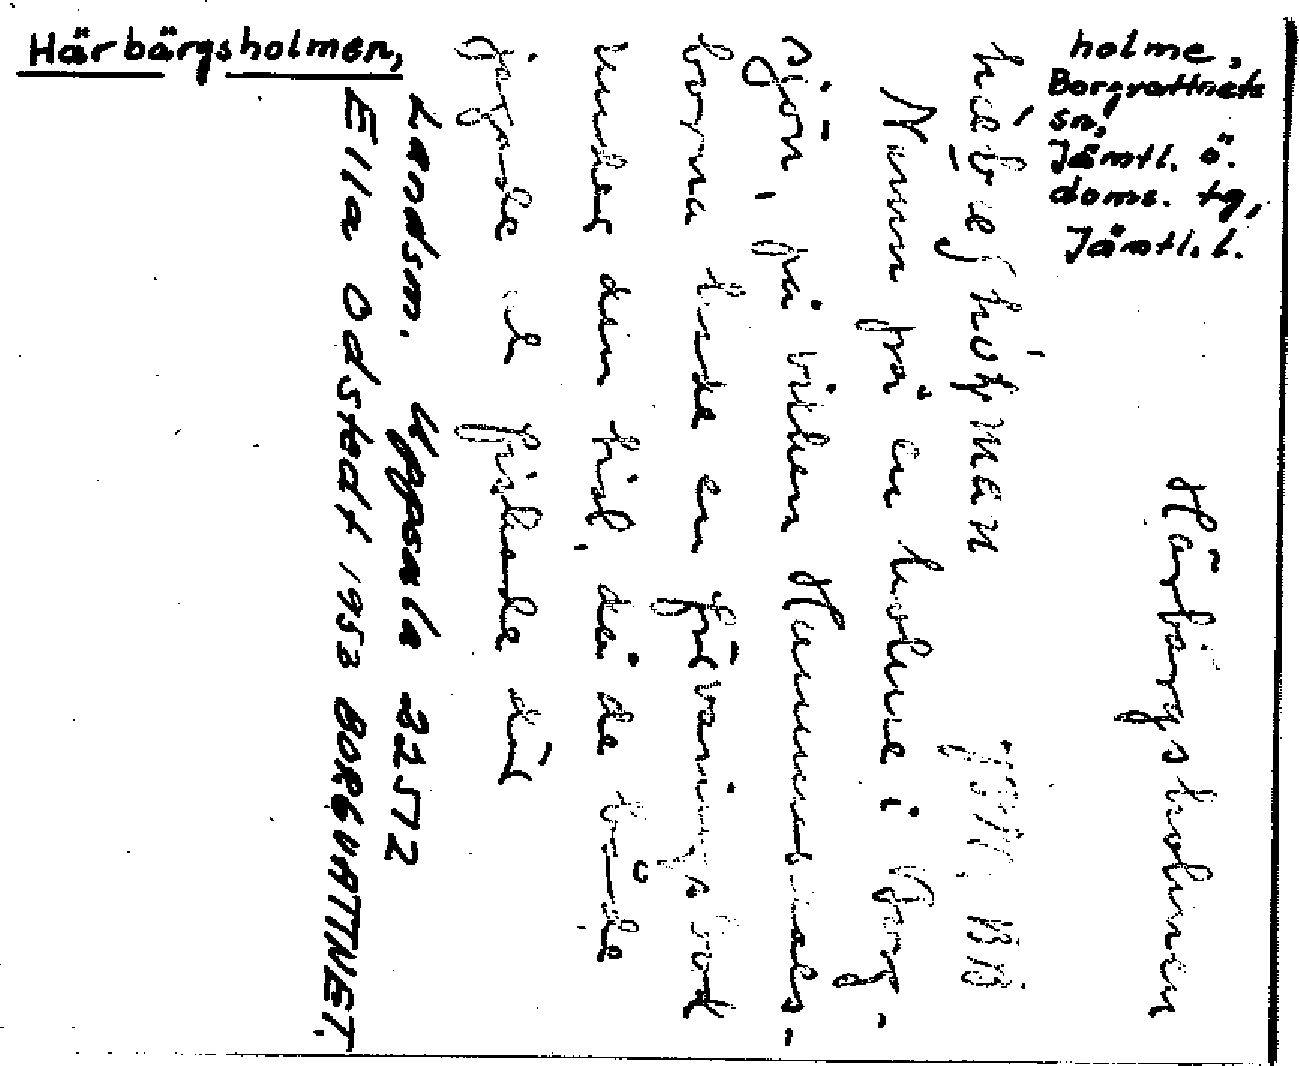 Härbärgsholmen,
holme,
Borgvattnets
sn,
Jämtl. ö.
doms. tg,
Jämtl. l.
Härbärgsholmen
Namn på en holme i Borg-
sjön, på vilken Hammerdals-
borna hade en förvaringsbod
under den tid, då de både
jagade o fiskade där
Landsm. Uppsala 22572
Ella Odstedt 1953 BORGVATTNET.